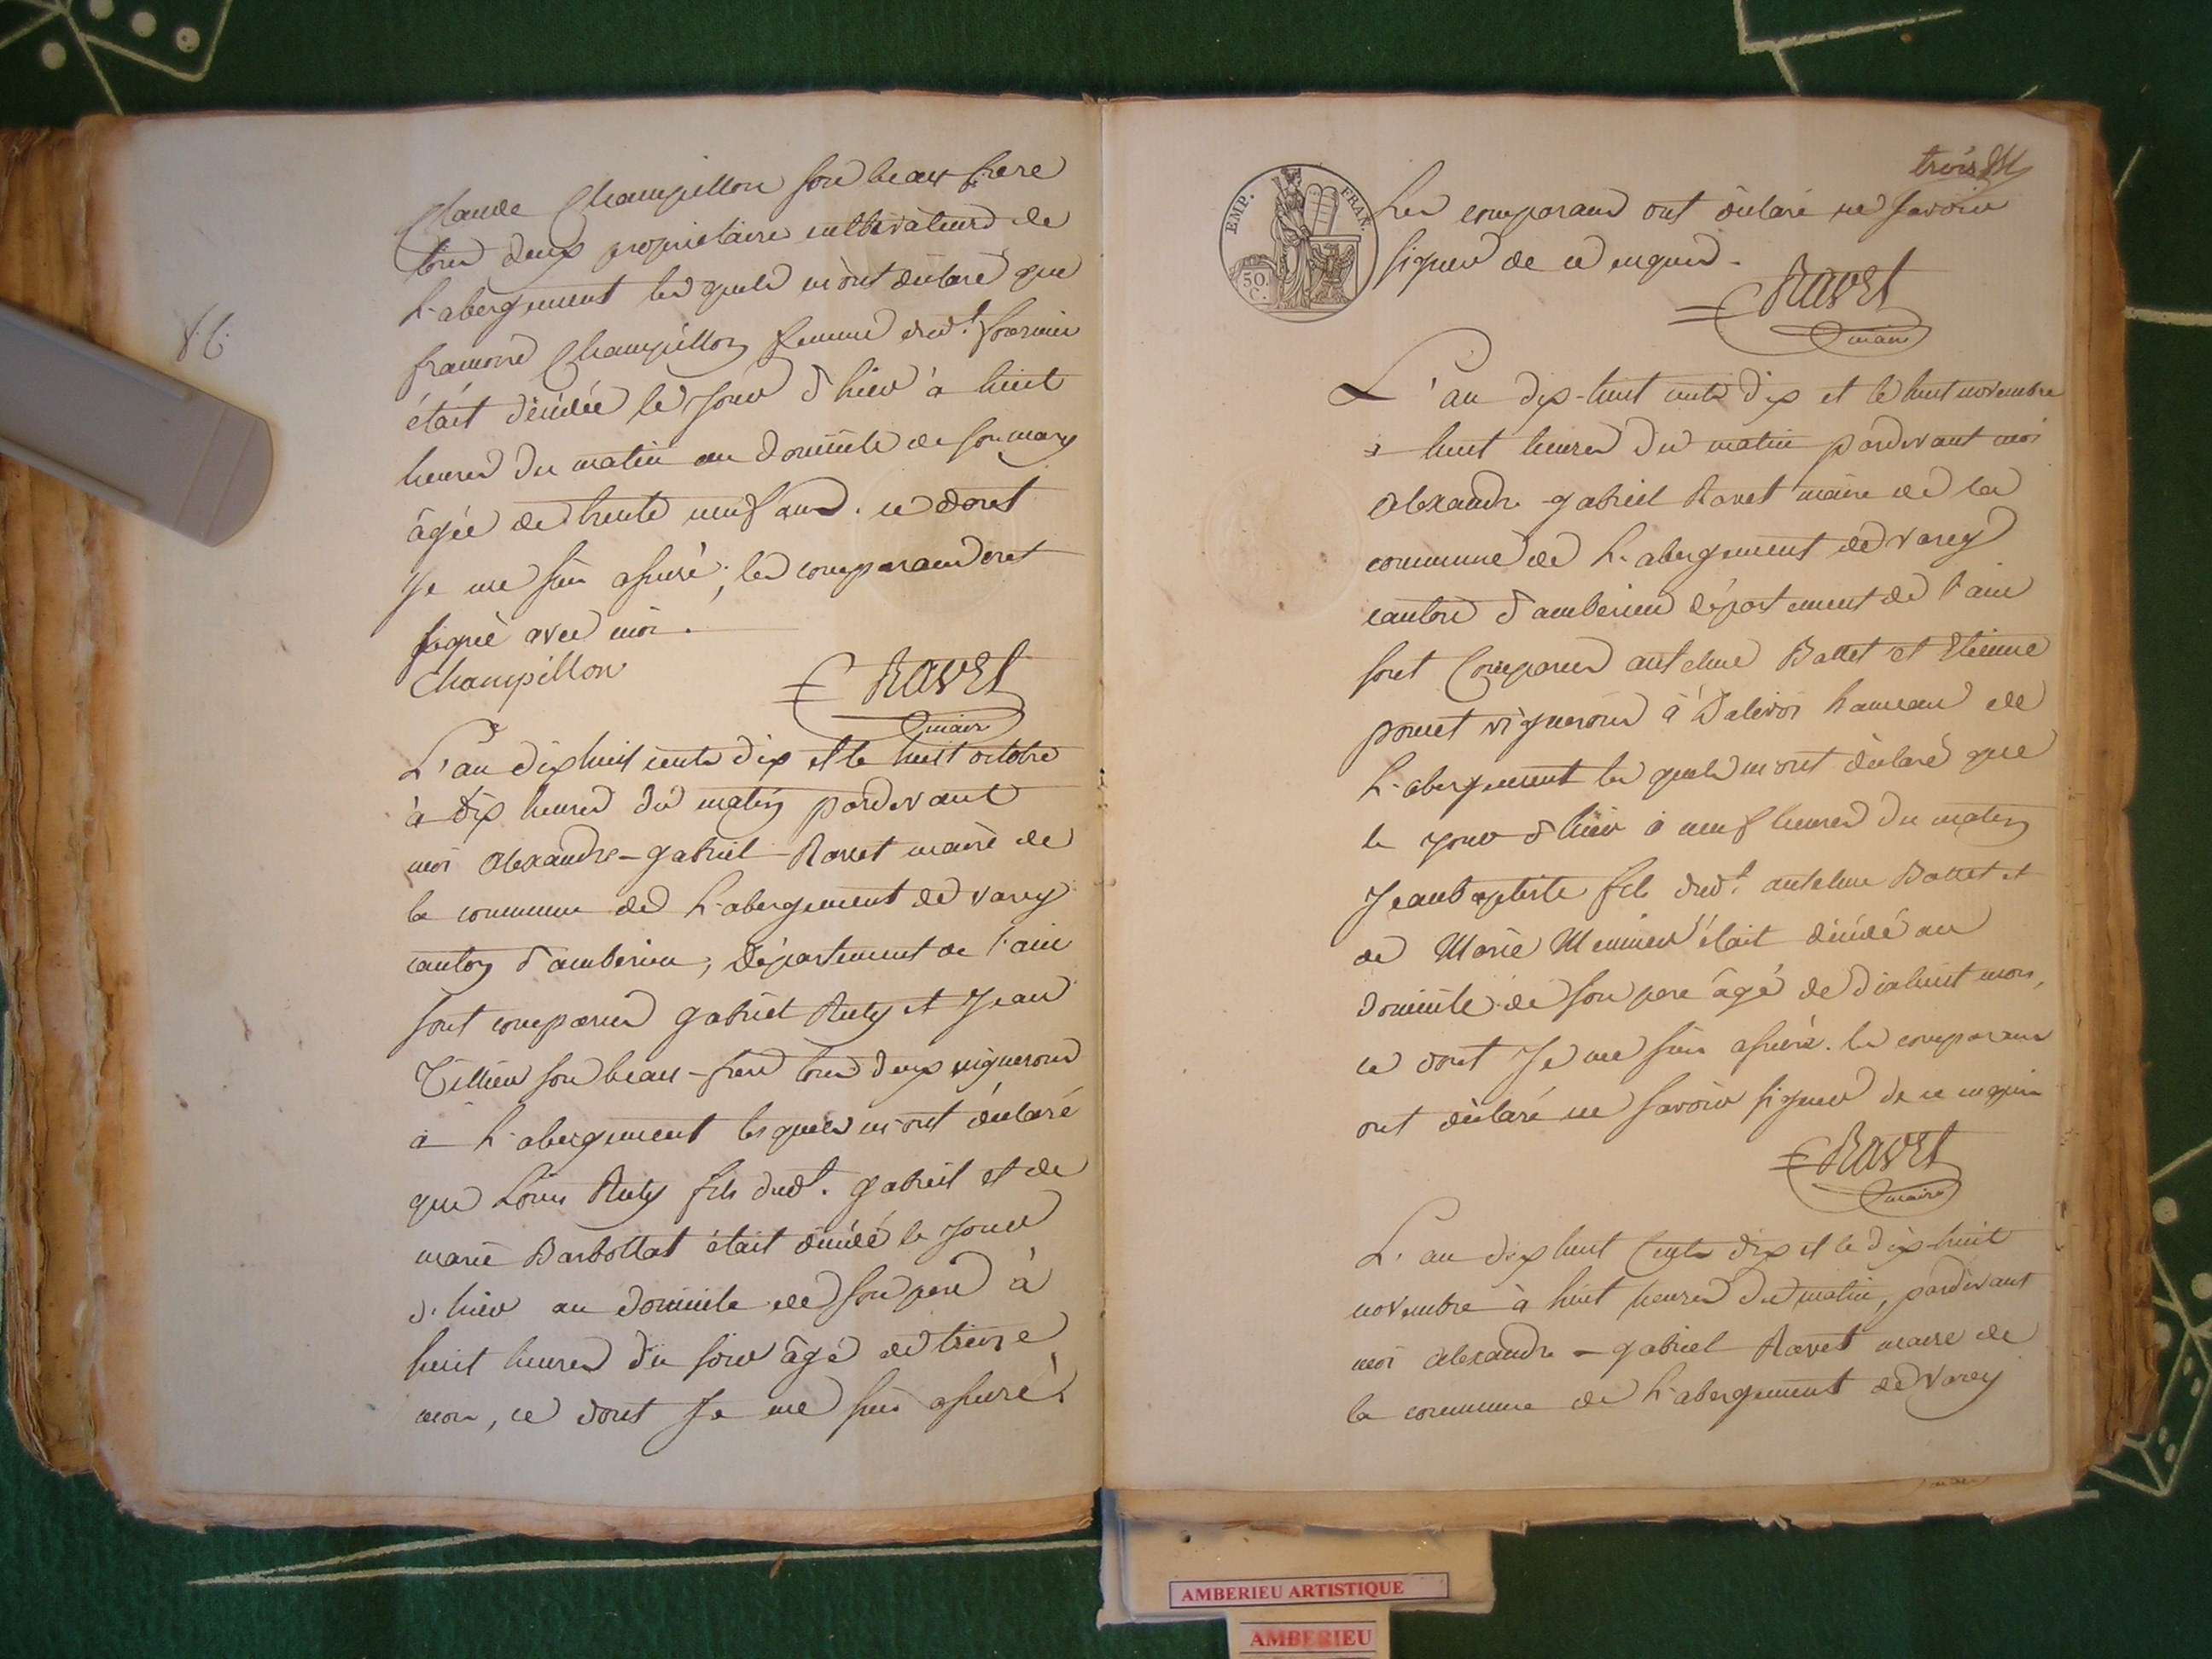 Claude Champillon son beau frere
tous deux propriétaire cultivateurs de
L'abergement les quels m'ont déclaré que
framoise Champillon femme dud.t fournier
était décédée le jour d'hier à huit
heures du matin au domicile de son mary
âgée de trente neuf ans. ce dont
Je me suis assuré; les comparans ont
signé avec moi.
Champillon
Ravet
maire
L'an dix huit cents dix et le huit octobre
à dix heures du matin pardevant
moi alexandre-gabriel Ravet maire de
la commune de L'abergement de varey
canton d'amberieu, département de l'ain
sont comparus gabriel Ruty et Jean
Tillieu son beau-frere tous deux vignerons
à L'abergement lesquels m'ont déclaré
que Louis Ruty fils dud.t gabriel et de
marie Barbollat était décédé le jour
d'hier au domicile de son pere à
huit heures du soir âgé de treize
mois, ce dont Je me suis assuré.
EMP. FRAN.
50. C.
trois
Les comparans ont déclaré ne savoir
signer de ce enquis.
Ravet
maire
L'an dix-huit cents dix et le huit novembre
à huit heures du matin pardevant moi
alexandre gabriel Ravet maire de la
commune de L'abergement de varey
canton d'amberieu département de l'ain
sont Comparus antelme Battet et Etienne
ponset vignerons à Dalivoi hameau de
L'abergement les quels m'ont déclaré que
le jour d'hier à neuf heures du matin
Jeanbaptiste fils dud.t antelme Battet et
de Marie Meunier était décédé au
domicile de son pere âgé de dixhuit mois,
ce dont Je me suis assuré. les comparans
ont déclaré ne savoir signer de ce enquis
Ravet
maire
L'an dix huit Cents dix et le dix-huit
novembre à huit heures du matin, pardevant
moi alexandre-gabriel Ravet maire de
la commune de L'abergement de Varey
AMBERIEU ARTISTIQUE
AMBERIEU